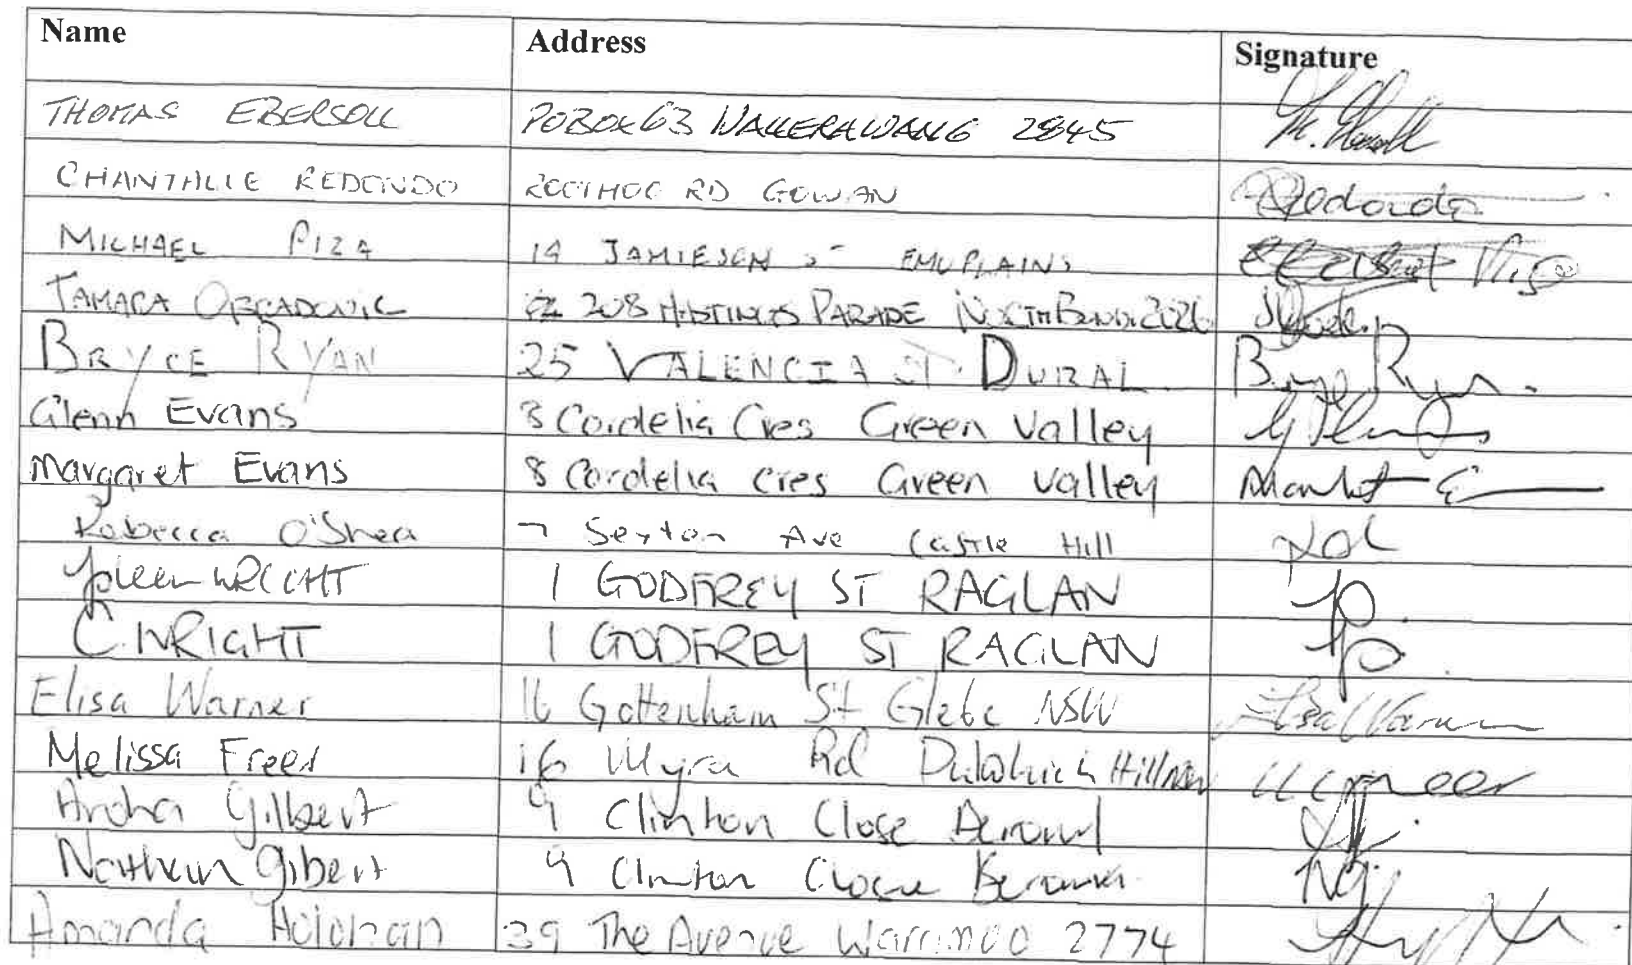 Name Address Signature
THOMAS EBERSOLL PO BOX 63 WALLERAWANG 2845
CHANTALLE REDONDO RD GOWAN Redondo
MICHAEL PIZA 19 JAMIESON ST EMU PLAINS
TAMARA OBRADOVIC 208 HASTINGS PARADE NORTH BONDI 2026
BRYCE RYAN 25 VALENCIA ST DURAL Bryce Ryan
Glenn Evans 8 Cordelia Cres Green Valley
Margaret Evans 8 Cordelia cres Green valley
Rebecca O'Shea 7 Sexton Ave Castle Hill
Joleen WRIGHT 1 GODFREY ST RAGLAN
C. WRIGHT 1 GODFREY ST RAGLAN
Elisa Warner 16 Gottenham St Glebe NSW Elisa Warner
Melissa Freer 16 Myra Rd Dulwich Hill NSW
Gilbert 9 Clinton Close Berowra
Nathan Gilbert 9 Clinton Close Berowra NG
Amanda Holohan 39 The Avenue Warrimoo 2774